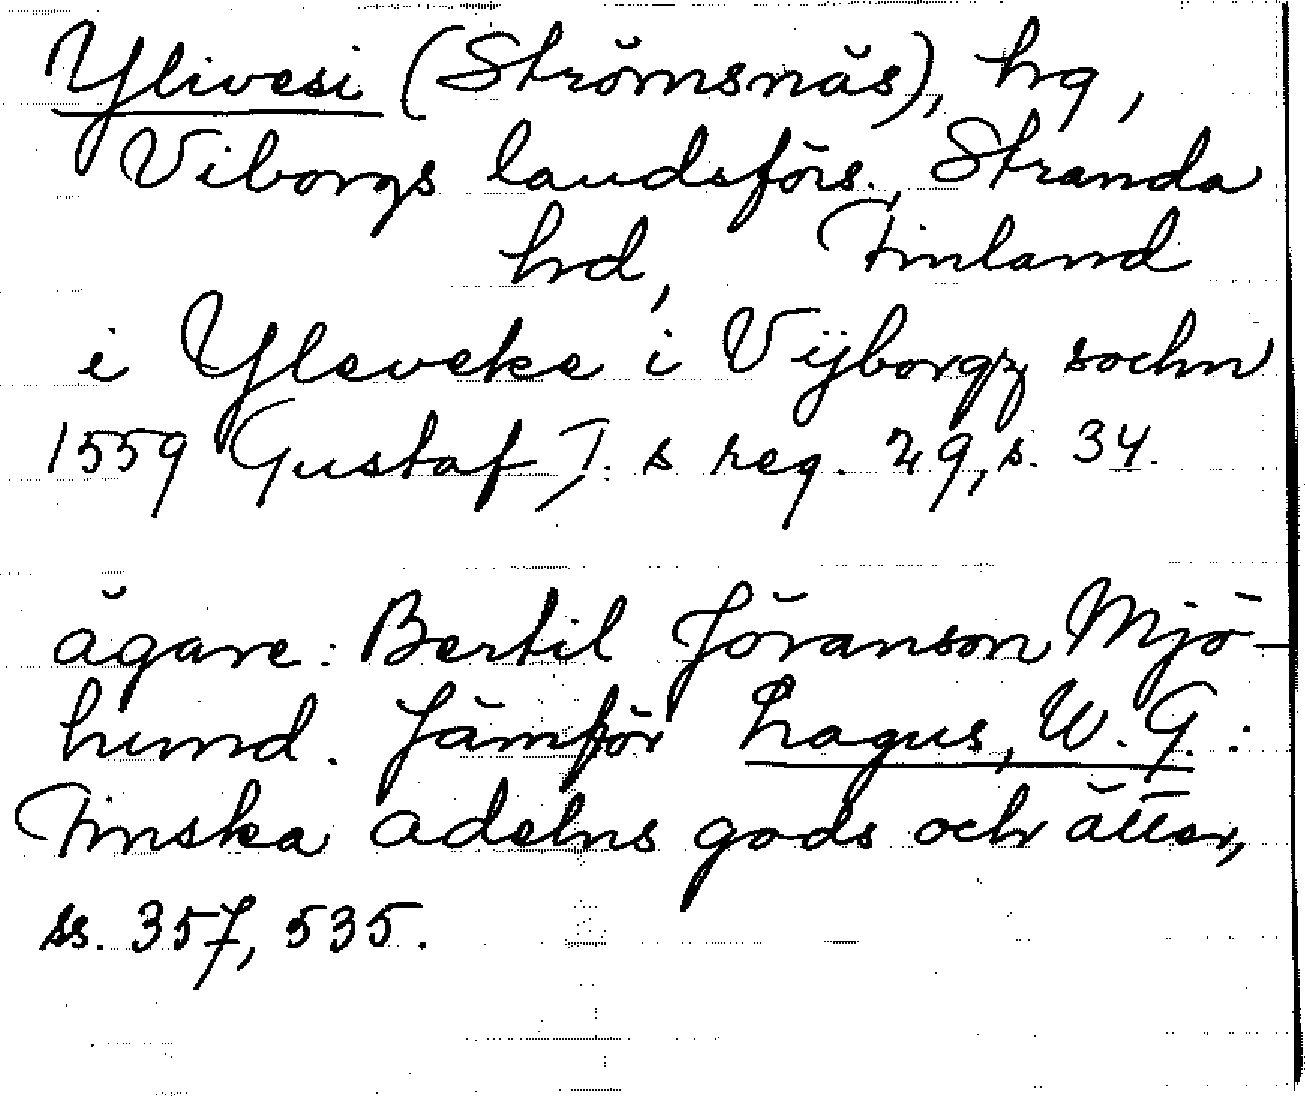 Ylivesi (Strömsnäs), hg,
Viborgs landsförs., Stranda
hd, Finland
i Yleveke i Vijborgz sochn
1559 Gustaf I:s reg. 29, s. 34.
ägare: Bertil Jöranson Mjö-
hund. Jämför Lagus, W. G.:
Finska adelns gods och ätter,
ss. 357, 535.